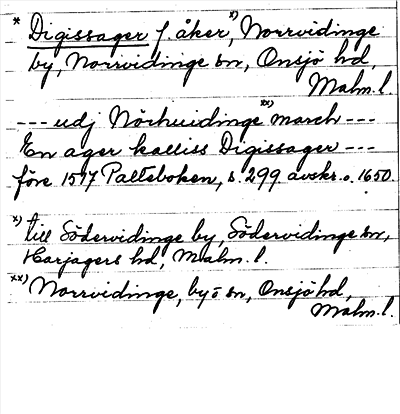 * Digissager f. åker, x) Norrvidinge
by, Norrvidinge sn, Onsjö hd,
Malm. l.
--- udj Nörhuidinge xx) march ---
En ager kalliss Digissager ---
före 1577 Palteboken, s. 299. avskr. o. 1650.
x) till Södervidinge by, Södervidinge sn,
Harjagers hd, Malm. l.
xx) Norrvidinge, by o sn, Onsjö hd,
Malm. l.